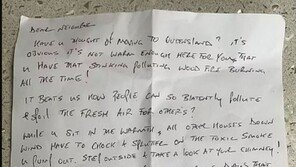 DEAR NEIGHBOUR
HAVE U THOUGHT OF MOVING TO QUEENSLAND? IT'S
OBVIOUS IT'S NOT WARM ENOUGH HERE FOR YOU, THAT
U HAVE THAT STINKING POLLUTING WOOD FIRE BURNING,
ALL THE TIME!
IT BEATS US HOW PEOPLE CAN SO BLATENTLY POLLUTE
& SPOIL THE FRESH AIR FOR OTHERS?
WHILE U SIT IN THE WARMTH, ALL OTHER HOUSES DOWN
WIND HAVE TO CHOKE & SPLUTTER ON THE TOXIC SMOKE
U PUMP OUT. STEP OUTSIDE & TAKE A LOOK AT YOUR CHIMNEY!
THAT